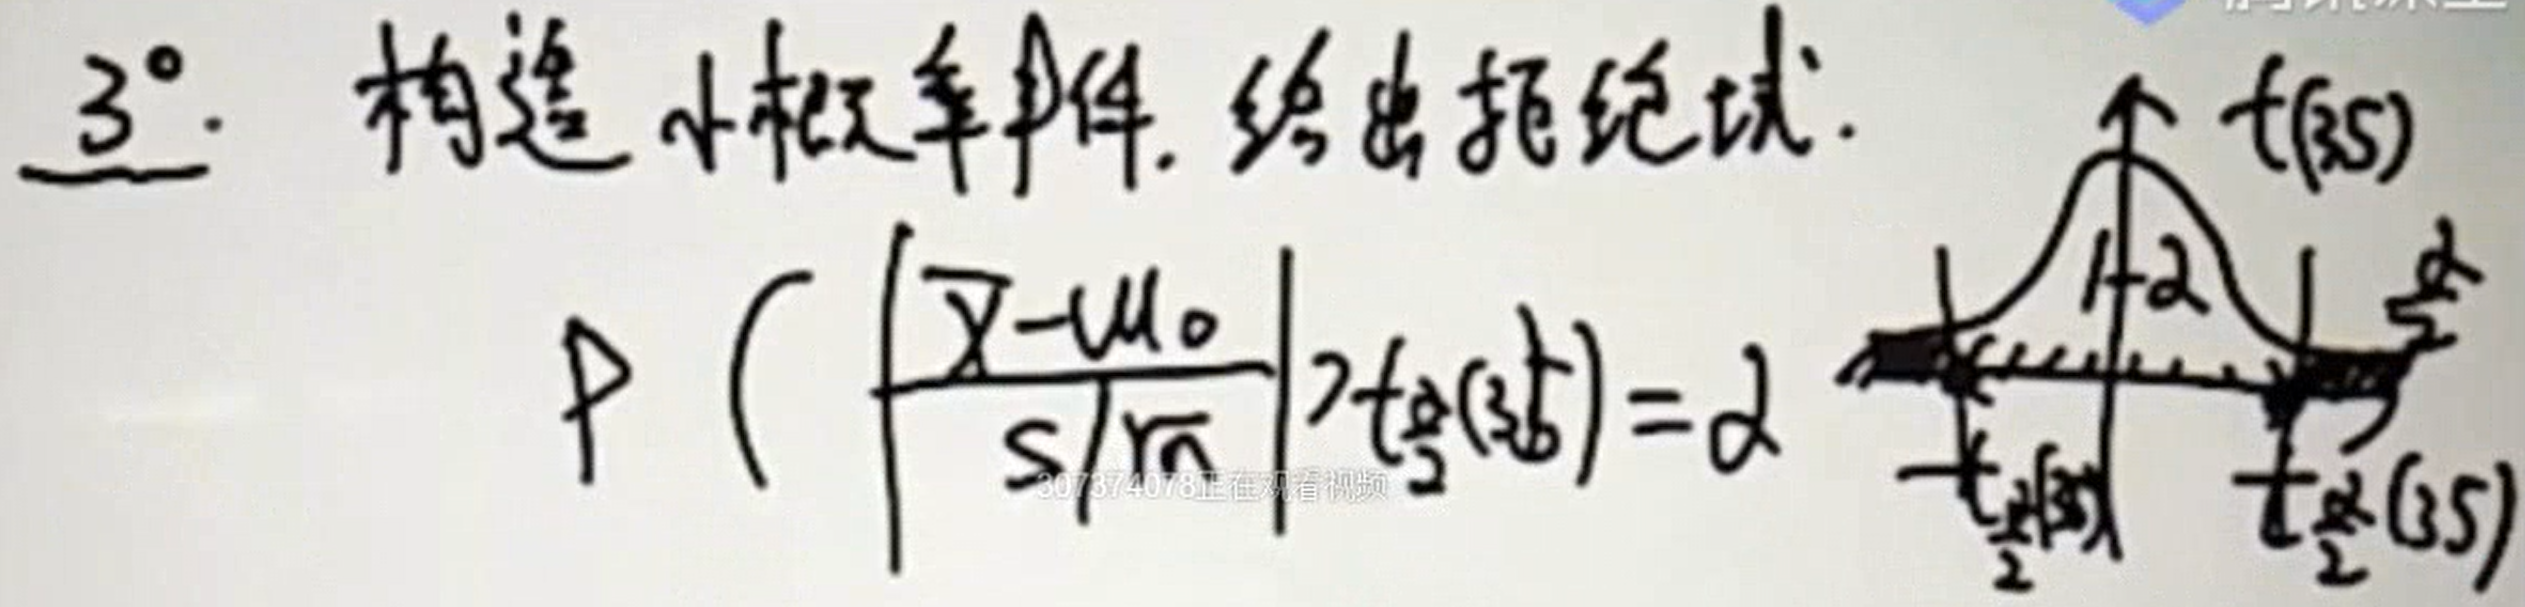 3°. 构造小概率事件. 给出拒绝域.
P(|X̄-μ₀ / S/√n| > t_{α/2}(35)) = α
t(35)
1-α
α/2
-t_{α/2}(35)
t_{α/2}(35)
307374078正在观看视频
腾讯课堂